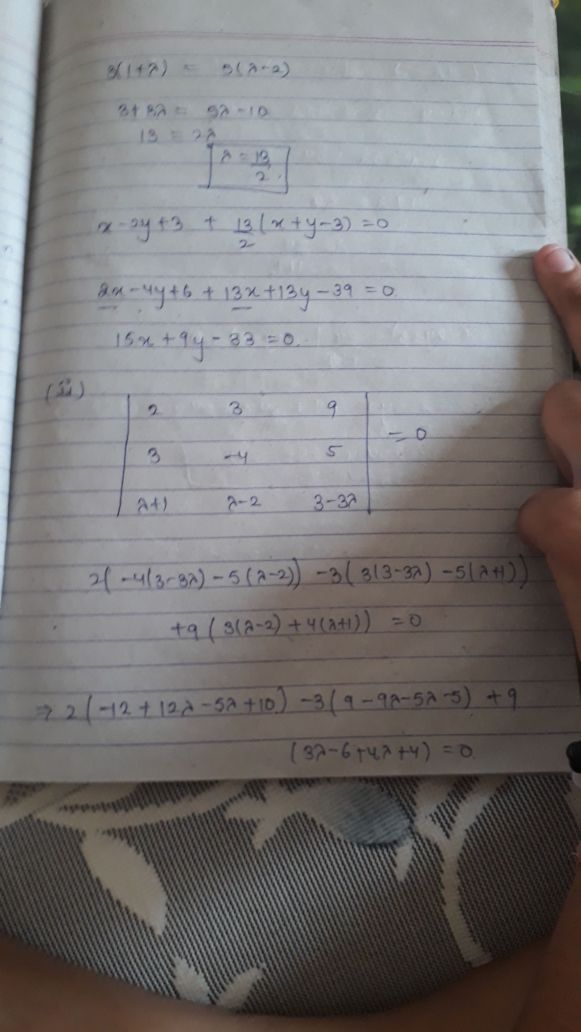 3(1+λ) = 5(λ-2)
3+3λ = 5λ-10
13 = 2λ
λ = 13/2
x-2y+3 + 13/2 (x+y-3) = 0
2x-4y+6 + 13x+13y-39 = 0
15x+9y-33 = 0
(ii)
| 2 3 9 |
| 3 -4 5 | = 0
| λ+1 λ-2 3-3λ |
2(-4(3-3λ)-5(λ-2)) -3(3(3-3λ)-5(λ+1))
+9(3(λ-2)+4(λ+1)) = 0
⇒ 2(-12+12λ-5λ+10) -3(9-9λ-5λ-5) +9
(3λ-6+4λ+4) = 0